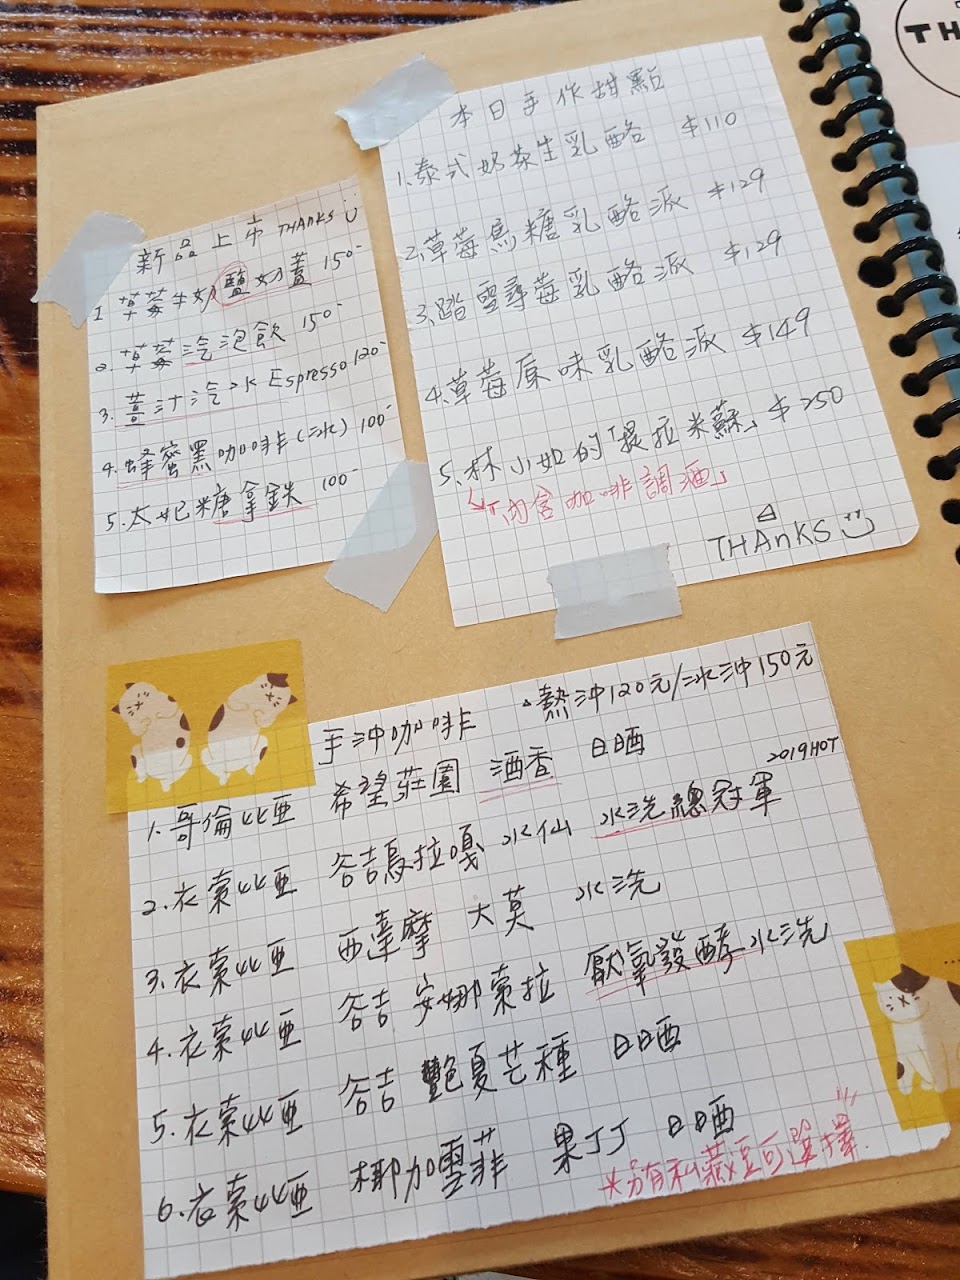 新品上市 THANKS
1 草莓牛奶鹽奶蓋 150-
2. 草莓汽泡飲 150-
3. 薑汁汽水 Espresso 120-
4. 蜂蜜黑咖啡(冰) 100-
5. 太妃糖拿鉄 100-
本日手作甜點
1. 泰式奶茶生乳酪 $110
2. 草莓焦糖乳酪派 $129
3. 踏雪尋莓乳酪派 $129
4. 草莓原味乳酪派 $149
5. 林小如的「提拉米蘇」 $250
「內含咖啡調酒」
THANKS
手沖咖啡 熱沖120元/冰沖150元
1. 哥倫比亞 希望莊園 酒香 日晒
2019 HOT
2. 衣索比亞 谷吉烏拉嘎 水仙 水洗總冠軍
3. 衣索比亞 西達摩 大莫 水洗
4. 衣索比亞 谷吉 安娜索拉 厭氧發酵水洗
5. 衣索比亞 谷吉 艷夏芒種 日晒
6. 衣索比亞 椰加雪菲 果丁丁 日晒
*另有私藏豆可選擇
TH